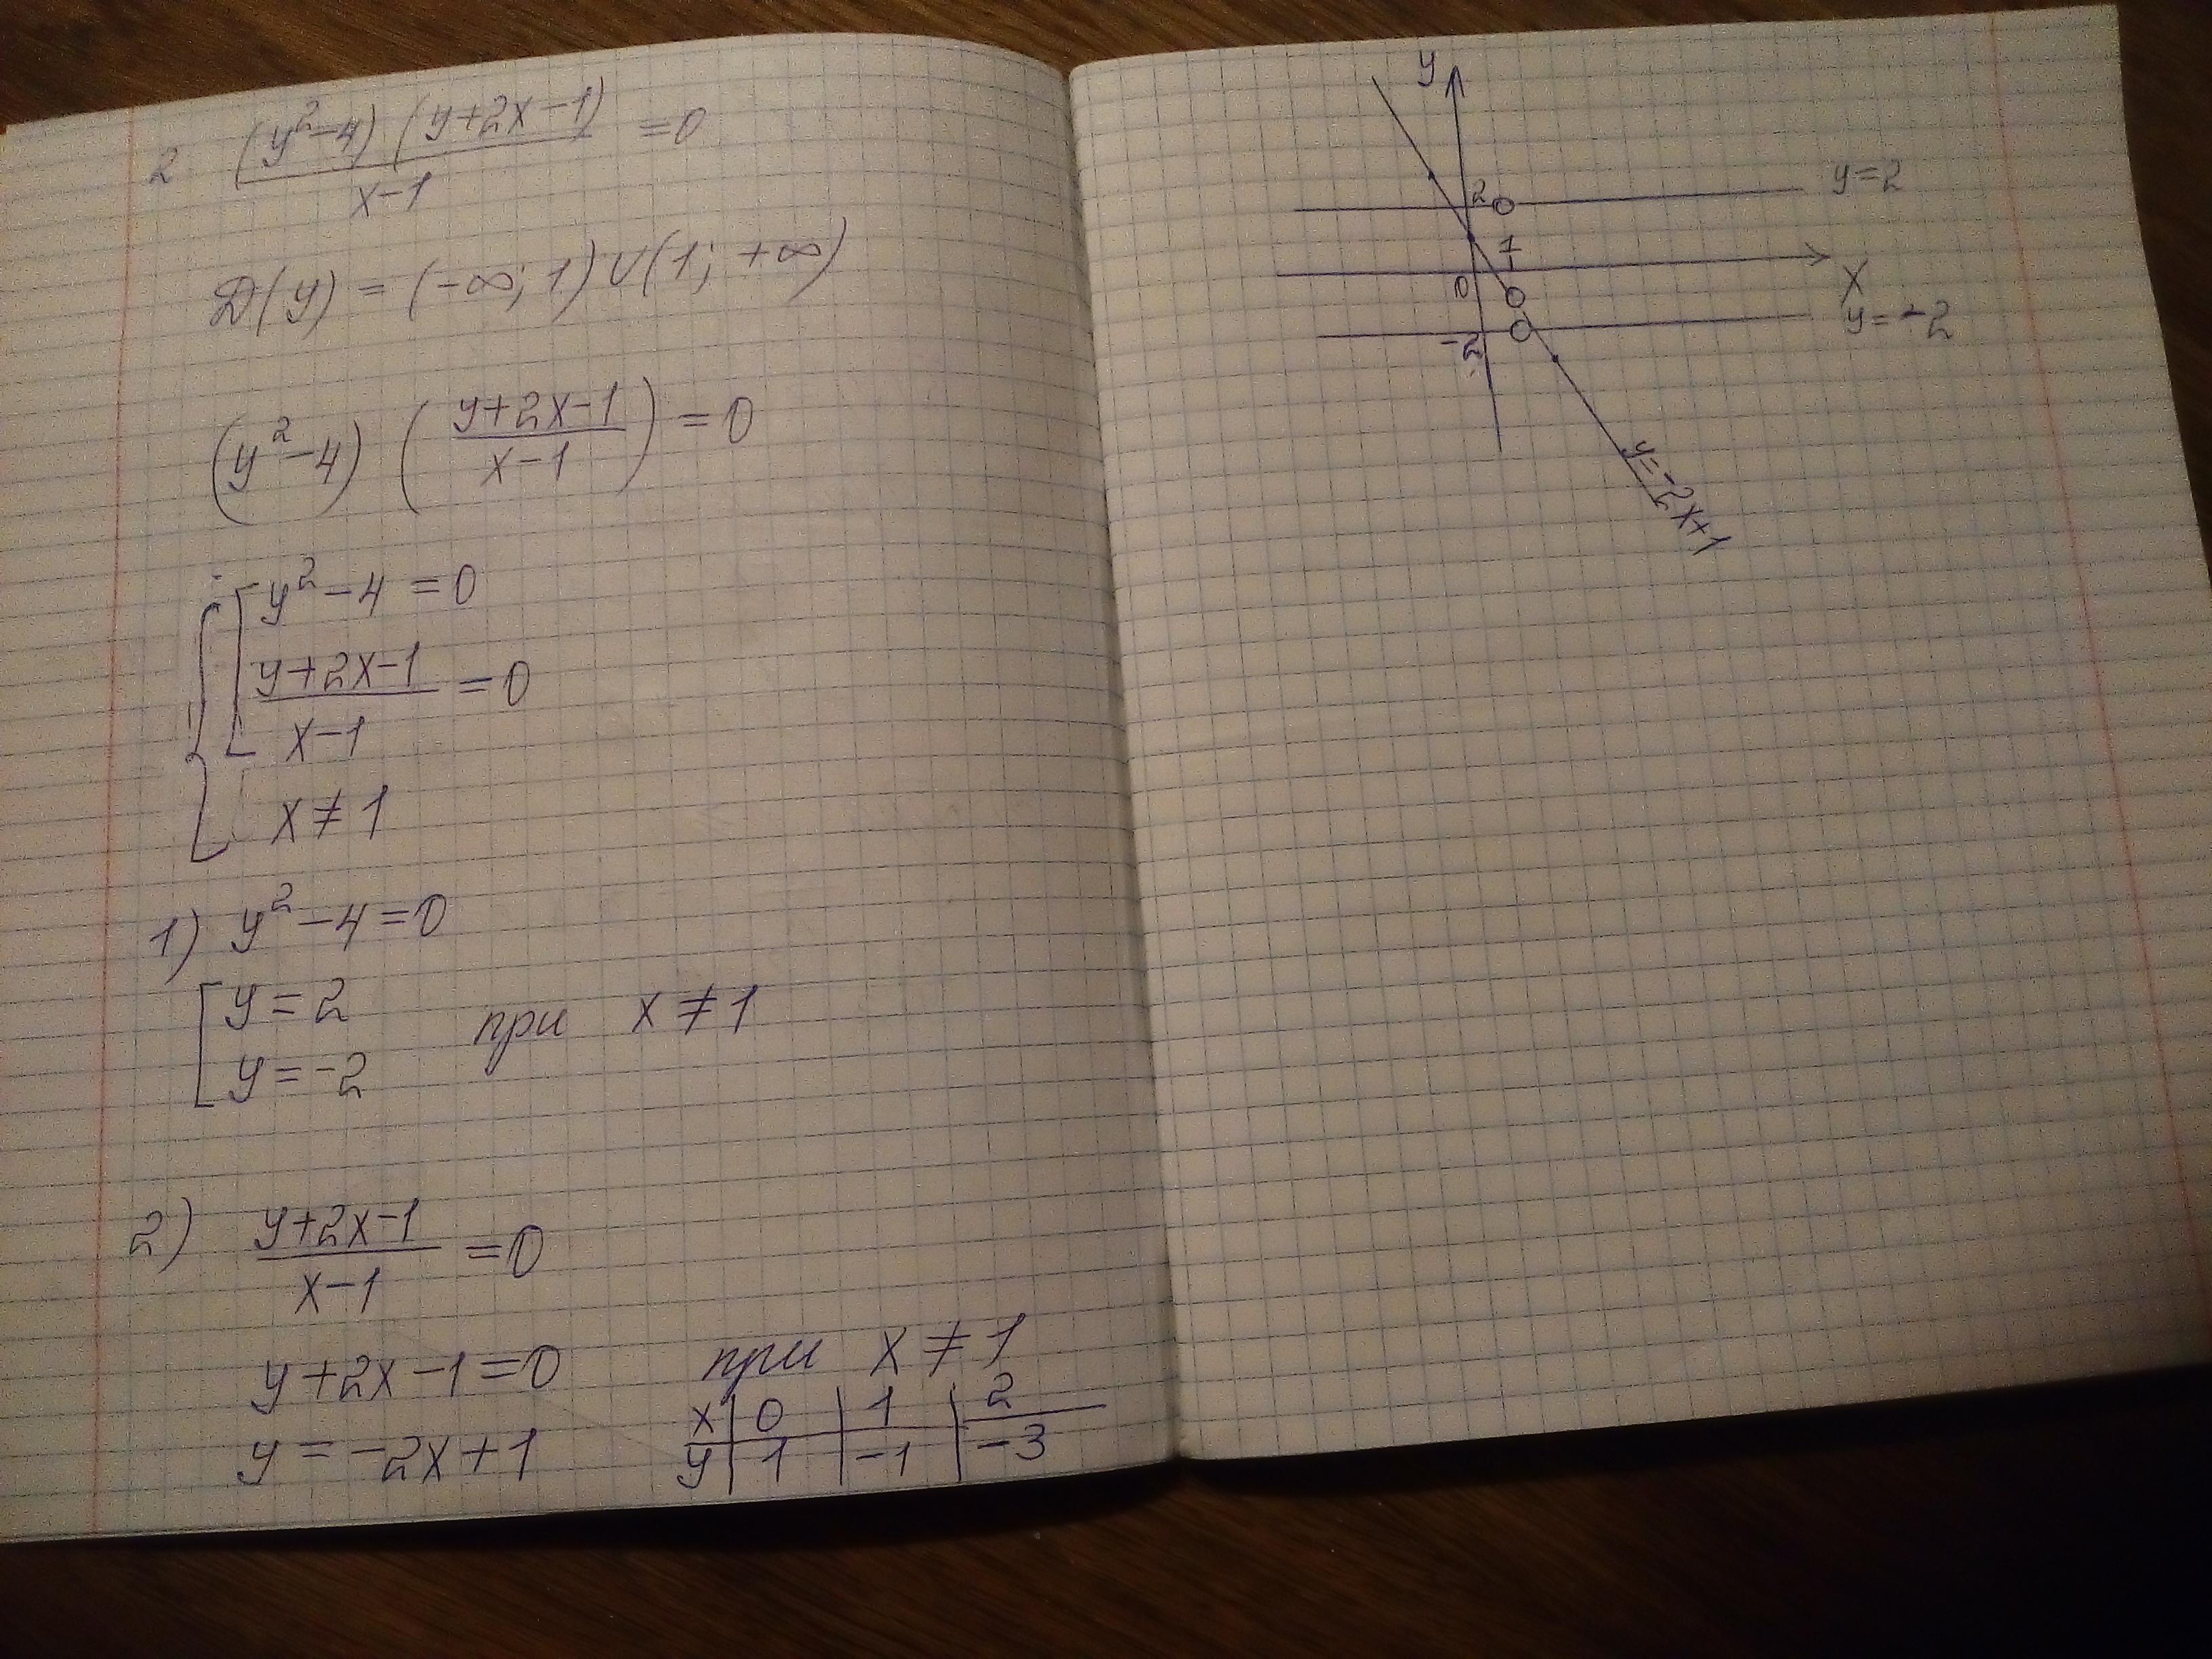 2 (y²-4)(y+2x-1)/(x-1) =0
D(y) = (-∞; 1) ∪ (1; +∞)
(y²-4) ((y+2x-1)/(x-1)) = 0
{ [ y²-4 = 0
(y+2x-1)/(x-1) = 0
x ≠ 1
1) y²-4=0
[ y = 2
y = -2
при x ≠ 1
2) (y+2x-1)/(x-1) =0
y+2x-1=0 при x ≠ 1
y = -2x+1
x | 0 | 1 | 2
y | 1 | -1 | -3
y
y=2
2
1
0
x
y=-2
-2
y=-2x+1